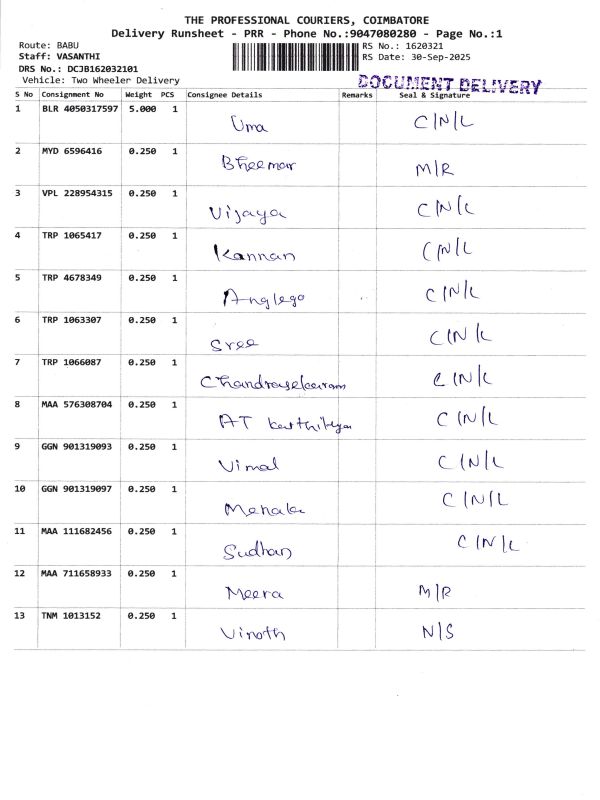 THE PROFESSIONAL COURIERS, COIMBATORE
Delivery Runsheet - PRR - Phone No.:9047080280 - Page No.:1
Route: BABU RS No.: 1620321
Staff: VASANTHI RS Date: 30-Sep-2025
DRS No.: DCJB162032101
Vehicle: Two Wheeler Delivery
DOCUMENT DELIVERY
S No Consignment No Weight PCS Consignee Details Remarks Seal & Signature
1 BLR 4050317597 5.000 1 Uma C/N/L
2 MYD 6596416 0.250 1 M/R
3 VPL 228954315 0.250 1 Vijaya C/N/L
4 TRP 1065417 0.250 1 Kannan C/N/L
5 TRP 4678349 0.250 1 Anglego C/N/L
6 TRP 1063307 0.250 1 Sree C/N/L
7 TRP 1066087 0.250 1 Chandrasekaram C/N/L
8 MAA 576308704 0.250 1 AT C/N/L
9 GGN 901319093 0.250 1 Vimal C/N/L
10 GGN 901319097 0.250 1 C/N/L
11 MAA 111682456 0.250 1 Sudhan C/N/L
12 MAA 711658933 0.250 1 Meera M/R
13 TNM 1013152 0.250 1 Vinoth N/S